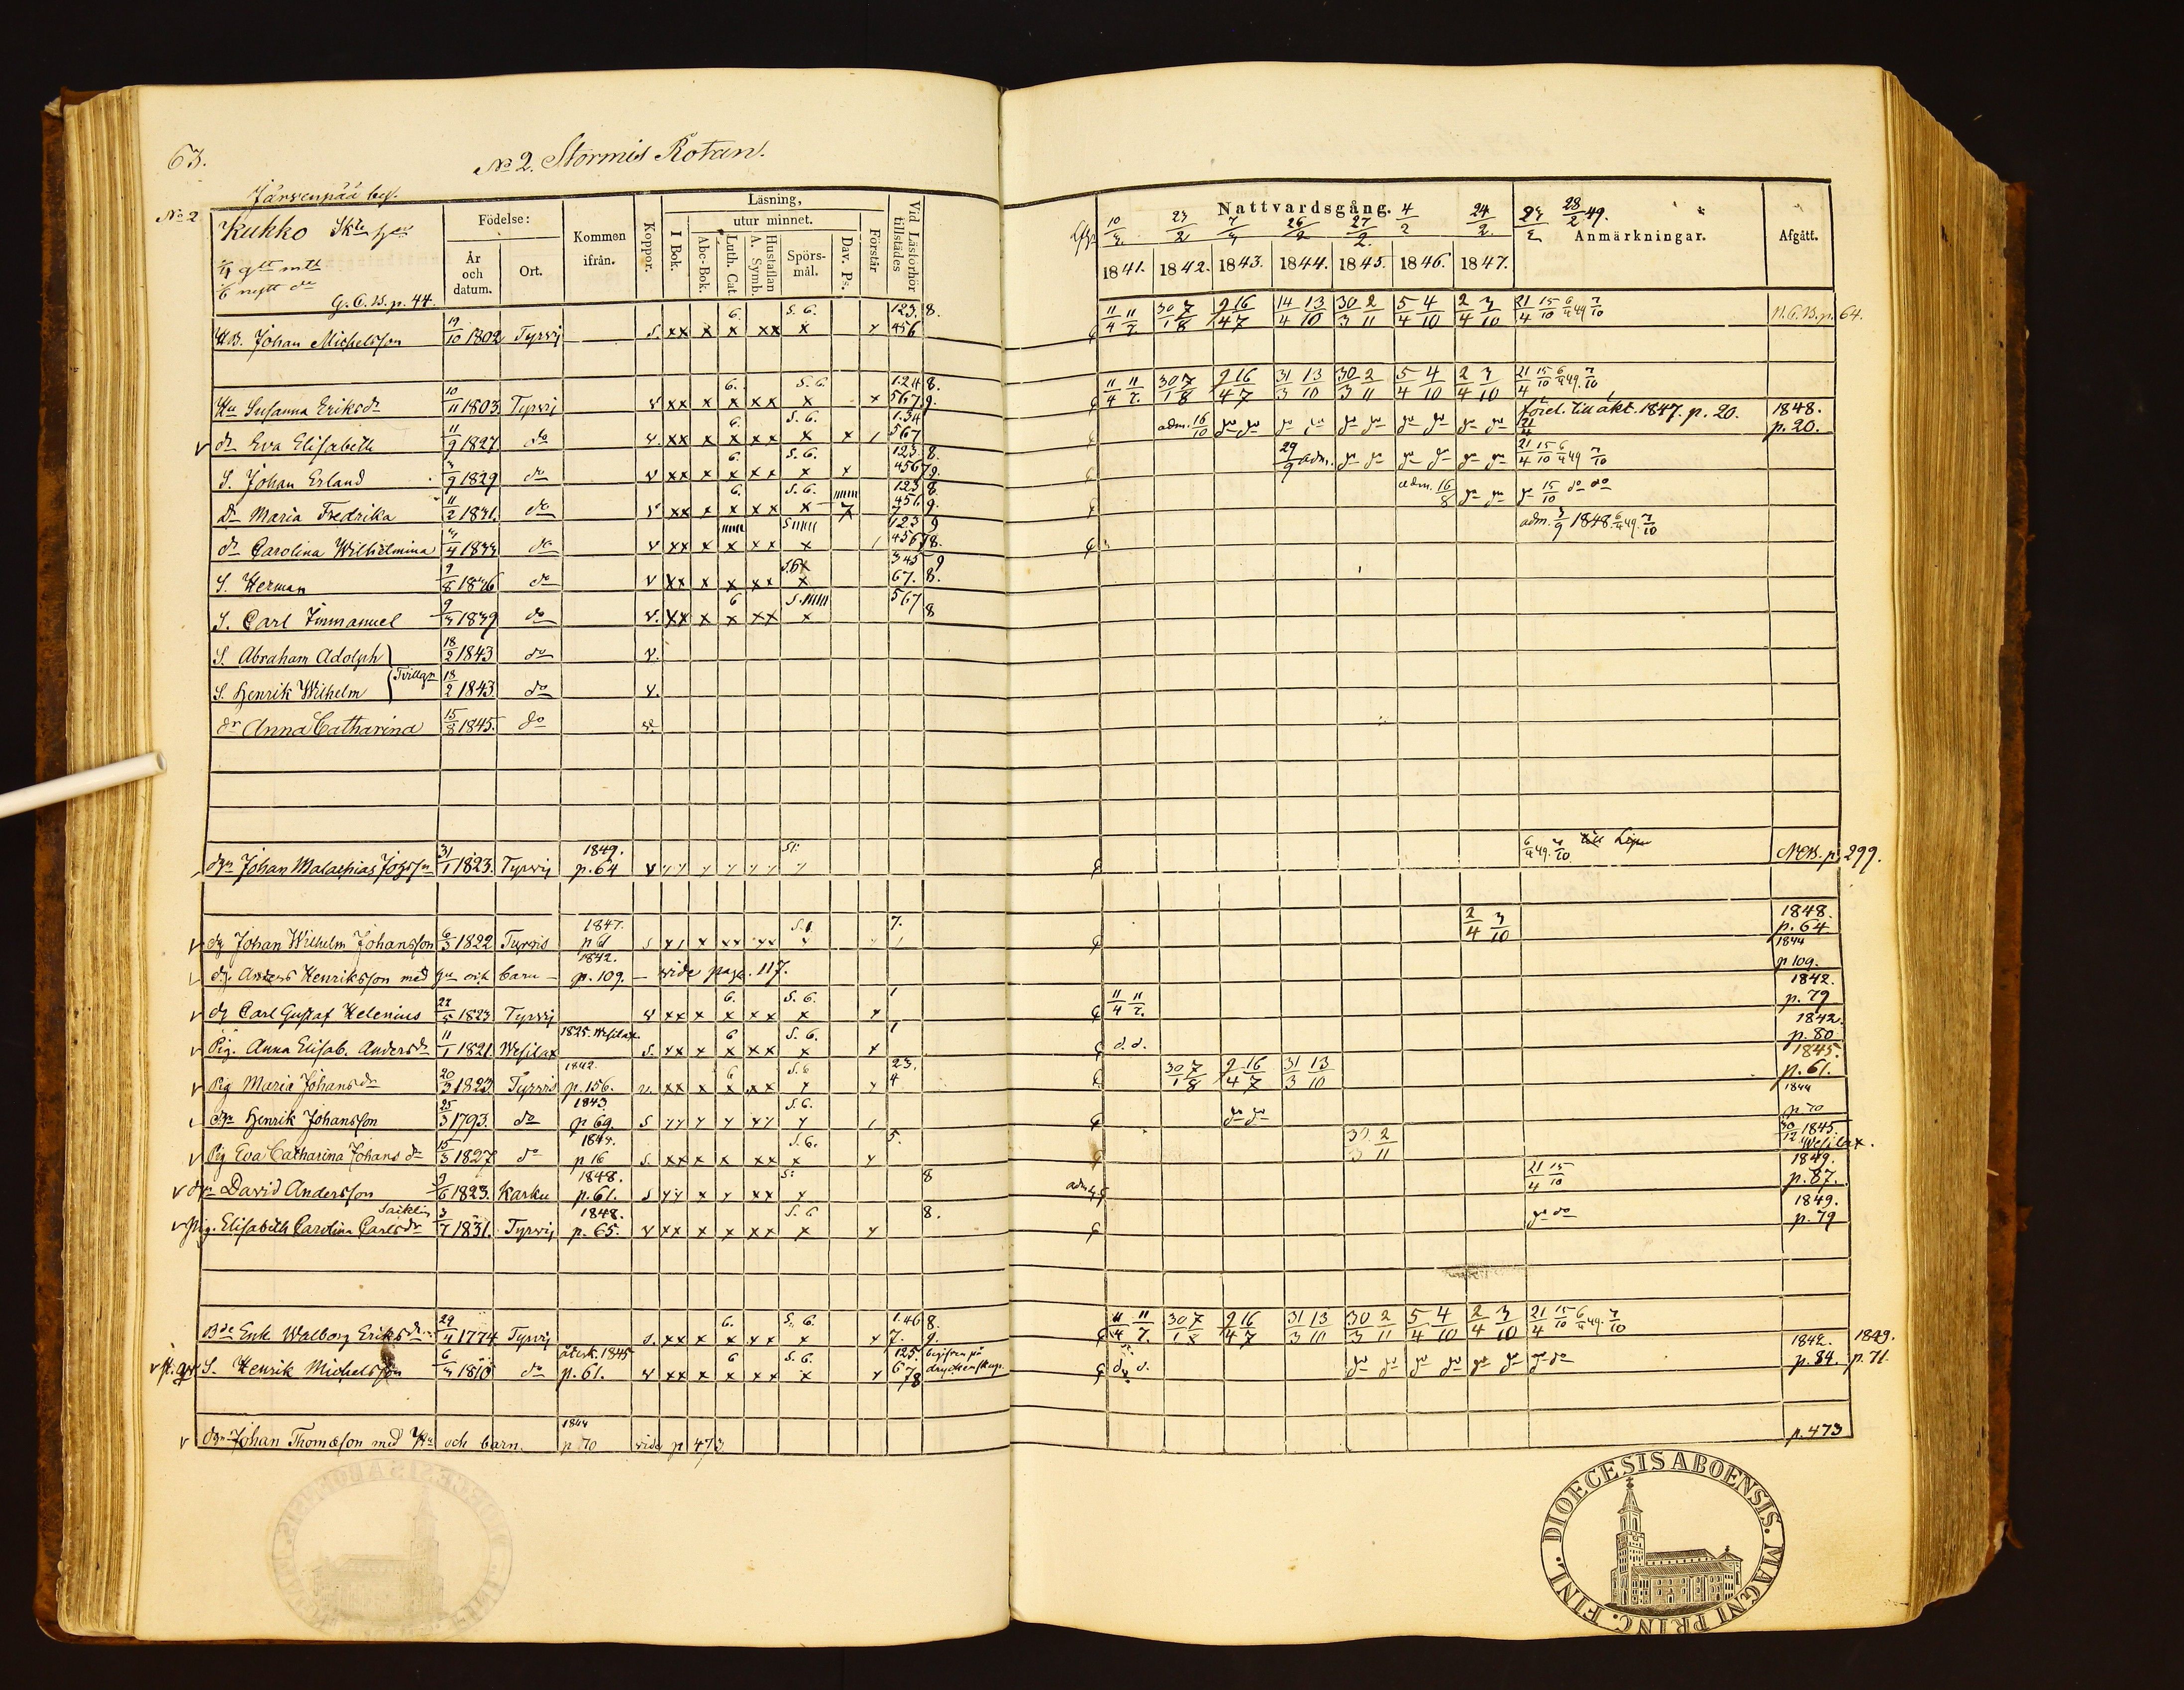 63.
No 2. Stormis Rotan.
Järvenpää by.
No 2
Kukko Skte
Födelse:
År och datum.
Ort.
Kommen ifrån.
Koppor.
Läsning,
I Bok.
utur minnet.
Abc-Bok.
Luth. Cat.
Hustaflan A. Symb.
Spörs-mål.
Dav. Ps.
Förstår
Vid Läsförhör tillstädes
G. C. B. p. 44.
Nattvardsgång.
Anmärkningar.
Afgått.
1841. 1842. 1843. 1844. 1845. 1846. 1847.
10/3 23/2 7/3 26/2 27/2 4/2 24/2 28/2 49.
HB. Johan Michelsson 19/10 1802 Tyrvis S. xx x x xx x 123. 8. 456 11/4 11/7 30/1 7/8 9/4 16/7 14/4 13/10 30/3 2/11 5/4 4/10 2/4 3/10 21/4 15/10 6/4 49 7/10 N.C.B. p. 64.
Hu Susanna Eriksdr 10/11 1803 Tyrvis v xx x x xx x x 124 8. 567 9. 11/4 11/7 30/1 7/8 9/4 16/7 31/3 13/10 30/3 2/11 5/4 4/10 2/4 3/10 21/4 15/10 6/4 49. 7/10
dr Eva Elisabeth 11/9 1827 do v. xx x x xx x x 1.34 567 adm. 16/10 do do do do do do do do do do 21/4 förel. till äkt. 1847. p. 20. 1848. p. 20.
S. Johan Erland 3/9 1829 do v xx x x xx x x 123 8. 456 79. 29/9 adm. do do do do do do 21/4 15/10 6/4 49 7/10
dr Maria Fredrika 11/2 1831. do v xx x x xx x 123 8. 456 9. adm. 16/8 do do do 15/10 do do
dr Carolina Wilhelmina 3/4 1833 do v xx x x xx x 123 9 456 78. adm. 3/9 1848. 6/4 49. 7/10
S. Herman 9/8 1836 do v xx x x xx x 345 9 67. 8.
S. Carl Immanuel 9/3 1839 do v. xx x x xx x 567 8
S. Abraham Adolph 18/2 1843 do v.
Tvillgr
S. Henrik Wilhelm 18/2 1843 do v.
dr Anna Catharina 15/8 1845. do v.
drgn Johan Malachias Johsson 31/1 1823. Tyrvis 1849. p. 64 v 6/4 49. 7/10 till N.C.B. p. 299.
dg Johan Wilhelm Johansson 6/3 1822 Tyrvis 1847. p 61 S. 7. 2/4 3/10 1848. p. 64
dg. Anders Henriksson med hu och barn 1842. p. 109. vide page. 117. 1844 p 109.
dg Carl Gustaf Helenius 1823 Tyrvis v xx x x xx x x 1 11/4 11/7 1842. p. 79
Pig. Anna Elisab. Andersdr 11/1 1821. Wesilax 1825. Wesilax S. xx x x xx x x 1 d. d. 1842. p. 80
Pig Maria Johansdr 20/3 1823 Tyrvis 1842. p. 156. v. xx x x xx x x 23. 4 30/1 7/8 9/4 16/7 31/3 13/10 1845. p. 61.
dgr Henrik Johansson 25/3 1793. do 1843 p 69. S do do 1844 p 70
Pig Eva Catharina Johansdr 15/3 1827 do p 16 S. xx x x xx x x 5. 30/3 2/11 30/12 1845. Wesilax.
dgr David Andersson 9/6 1823. Karku 1848. p. 61. S 8 21/4 15/10 1849. p. 87.
Pig. Elisabeth Carolina Carlsdr 3/7 1831. Tyrvis 1848. p. 65. v xx x x xx x x 8. do do 1849. p. 79
Bde Enk. Walborg Eriksdr 29/4 1774 Tyrvis S. xx x x xx x x 1.46 8. 7. 9. 11/4 11/7 30/1 7/8 9/4 16/7 31/3 13/10 30/3 2/11 5/4 4/10 2/4 3/10 21/4 15/10 6/4 49. 7/10
S. Henrik Michelsson 6/3 1810 do återk. 1845 p. 61. v xx x x xx x x 125. 6 78 begifven på dryckenskap. d. d. do do do do do do do do 1842. p. 84. 1849. p. 71.
drgr Johan Thomasson med Hu och barn. 1844 p 70 vide p 473 p. 473
DIOECESIS ABOENSIS. MAGNI PRINC. FINL.